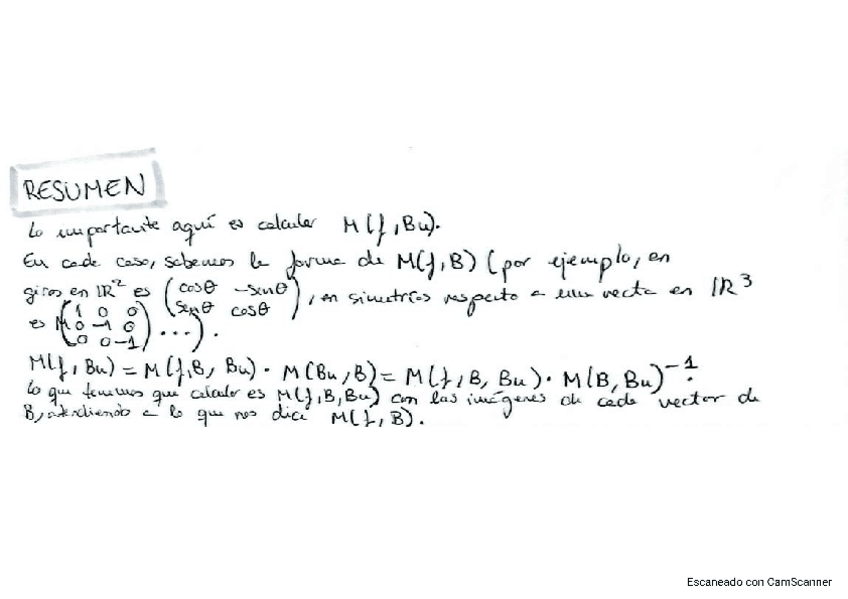 RESUMEN
Lo importante aquí es calcular M(f, Bu).
En cada caso, sabemos la forma de M(f, B) (por ejemplo, en
giros en IR² es (cosθ -senθ
senθ cosθ), en simetrías respecto a una recta en IR³
es M(1 0 0
0 -1 0
0 0 -1) ...).
M(f, Bu) = M(f, B, Bu) · M(Bu, B) = M(f, B, Bu) · M(B, Bu)⁻¹.
Lo que tenemos que calcular es M(f, B, Bu) con las imágenes de cada vector de
B, atendiendo a lo que nos dice M(f, B).
Escaneado con CamScanner